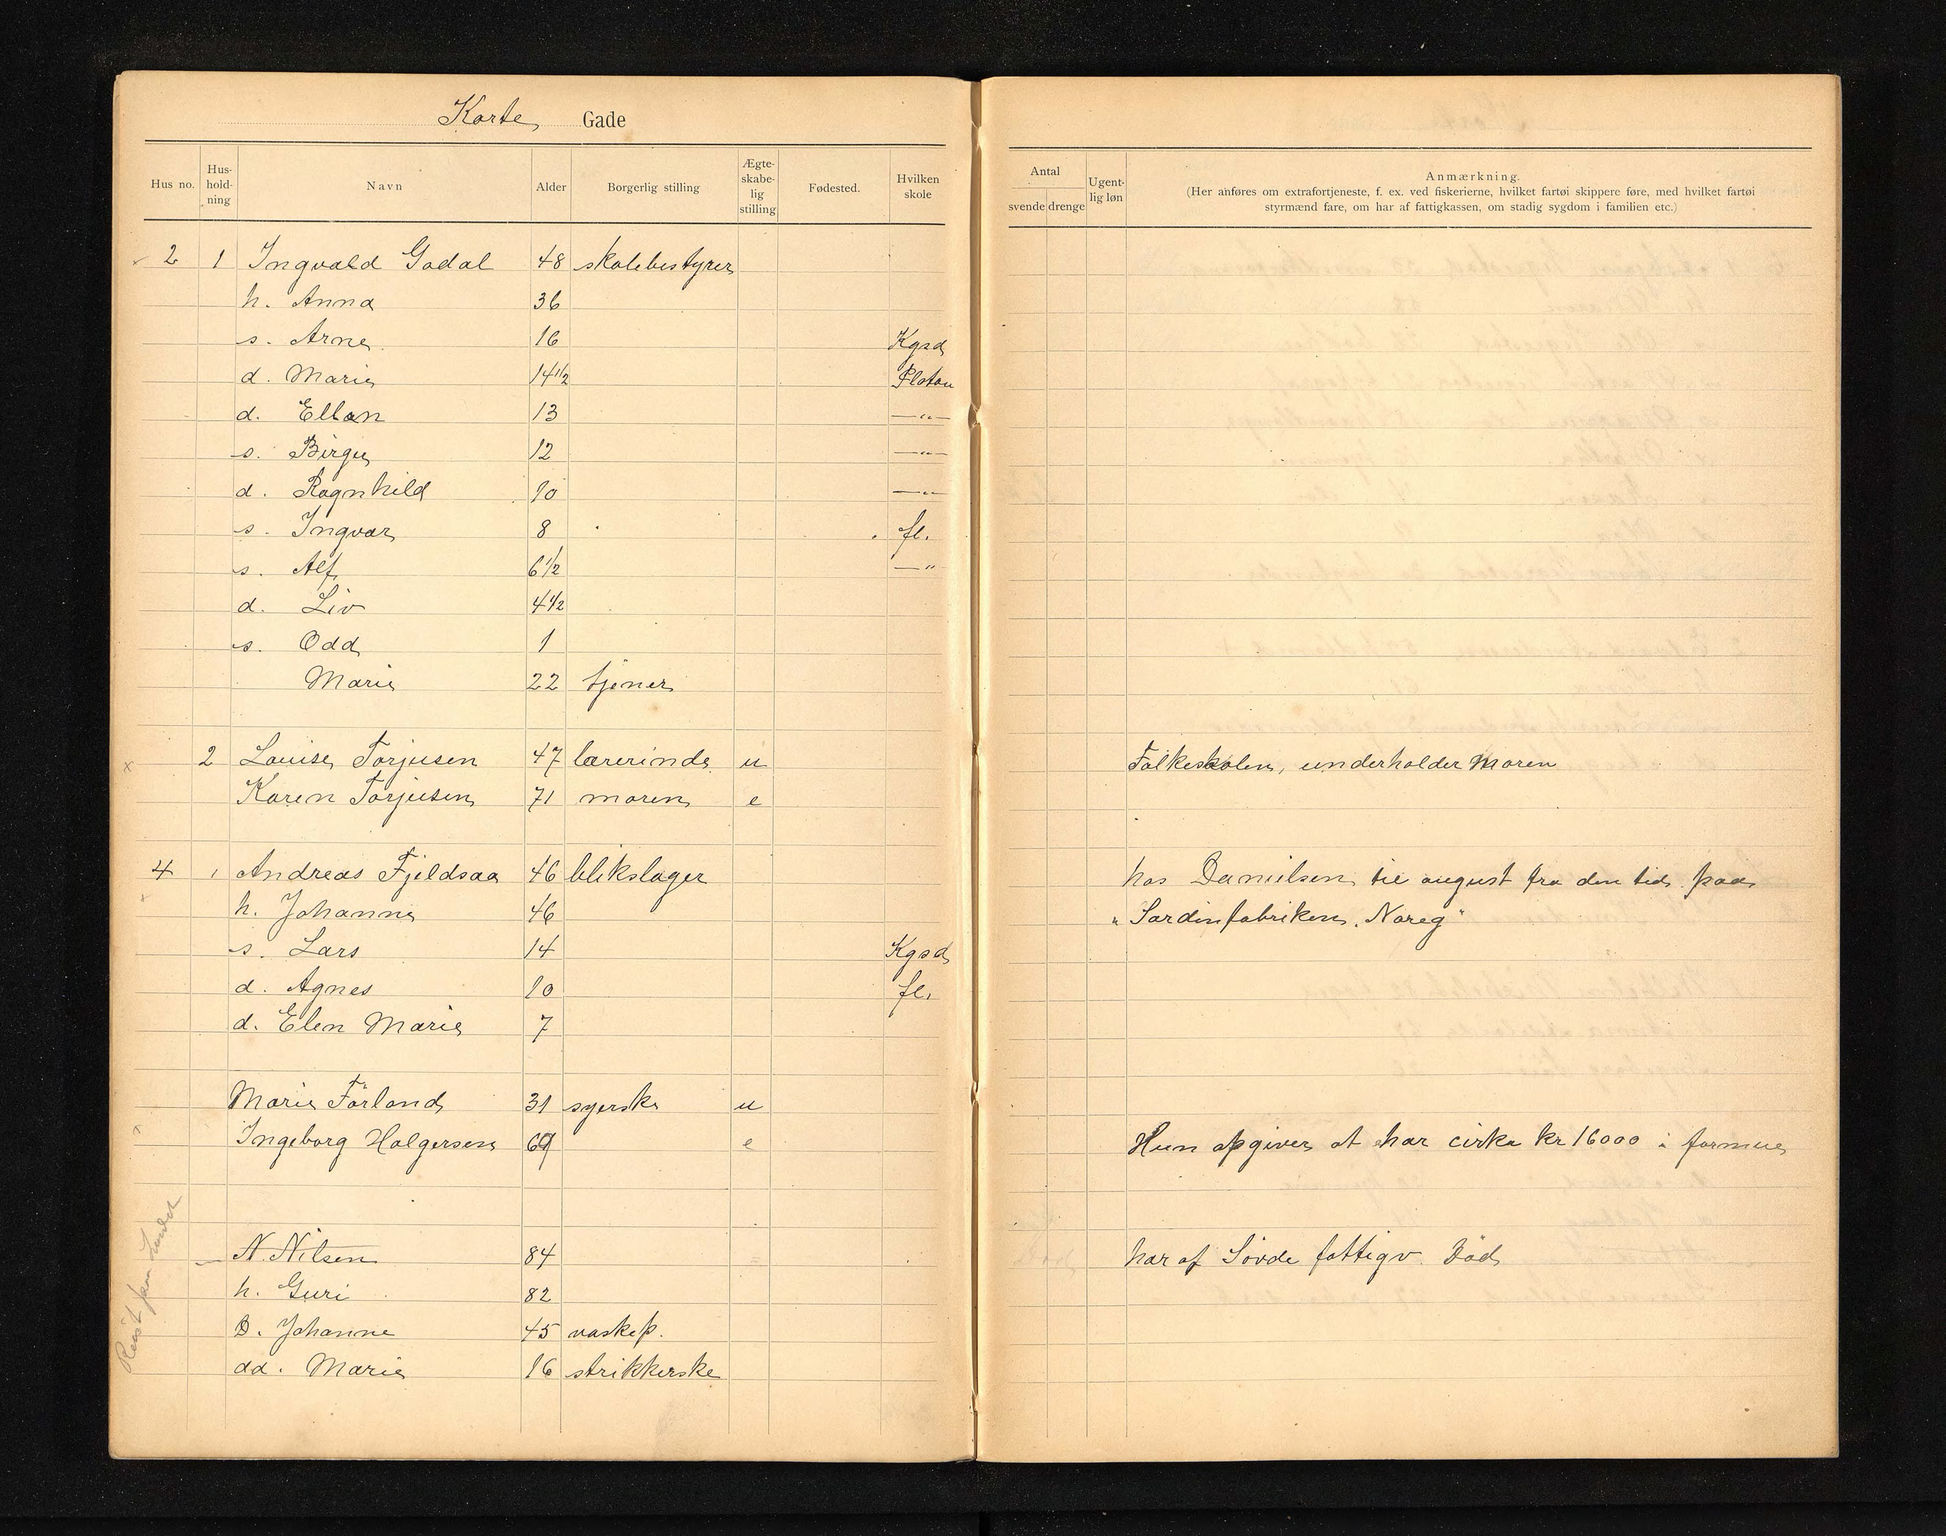 Korte Gade
Hus no. Hus-hold-ning Navn Alder Borgerlig stilling Ægte-skabe-lig stilling Fødested. Hvilken skole
Antal svende drenge Ugent-lig løn Anmærkning.
(Her anføres om extrafortjeneste, f. ex. ved fiskerierne, hvilket fartøi skippere føre, med hvilket fartøi
styrmænd fare, om har af fattigkassen, om stadig sygdom i familien etc.)
2 1 Ingvald Godal 48 skolebestyrer
h. Anna 36
s. Arne 16 Kgsd
d. Marie 14 1/2 Platou
d. Ellen 13 —"—
s. Birger 12 —"—
d. Ragnhild 10 —"—
s. Ingvar 8 fl.
s. Alf 6 1/2 —"
d. Liv 4 1/2
s. Odd 1
Marie 22 tjener
2 Louise Torjusen 47 lærerinde u Folkeskolen, underholder moren
Karen Torjusen 71 moren e
4 1 Andreas Fjeldsaa 46 blikslager hos Danielsen til august fra den tid paa
h. Johanne 46 "Sardinfabriken Noreg"
s. Lars 14 Kgsd
d. Agnes 10 fl.
d. Elen Marie 7
Marie Förland 31 syerske u
Ingeborg Holgersen 69 e Hun opgiver at har cirka kr 16000 i formue
N. Nilsen 84 har af Søvde fattigv. Död
h. Guri 82
D. Johanne 45 vaskep.
dd. Marie 16 strikkerske
Reist